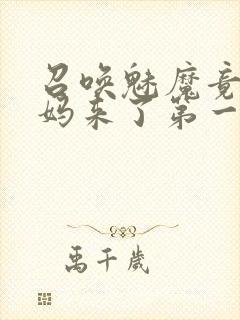 召唤魅魔竟
妈来了第一
禹千岁